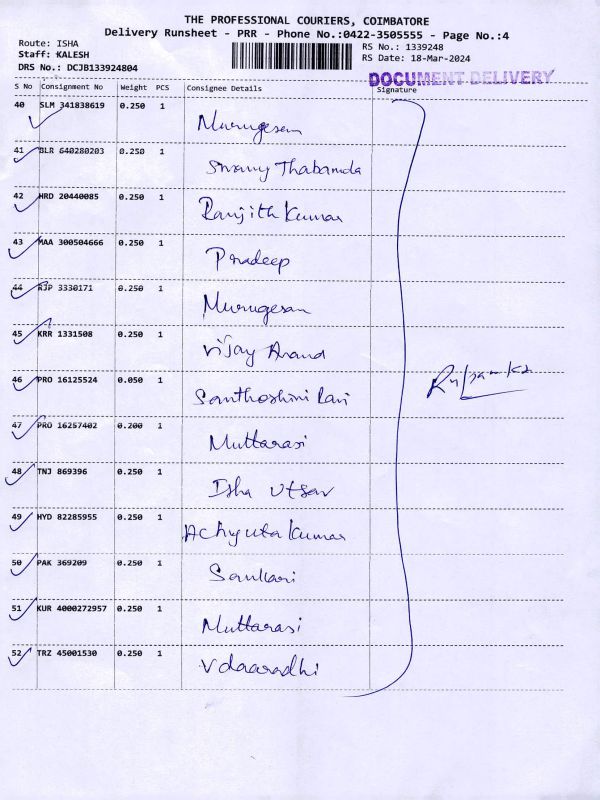 THE PROFESSIONAL COURIERS, COIMBATORE
Delivery Runsheet - PRR - Phone No.:0422-3505555 - Page No.:4
Route: ISHA
RS No.: 1339248
Staff: KALESH
RS Date: 18-Mar-2024
DRS No.: DCJB133924804
DOCUMENT DELIVERY
S No Consignment No Weight PCS Consignee Details Signature
40 SLM 341838619 0.250 1 Murugesan
41 BLR 640280203 0.250 1 Swamy Thabamda
42 HRD 20440085 0.250 1 Ranjith Kumar
43 MAA 300504666 0.250 1 Pradeep
44 RJP 3330171 0.250 1 Murugesan
45 KRR 1331508 0.250 1 Vijay Anand
46 PRO 16125524 0.050 1 Santhoshini Rani
47 PRO 16257402 0.200 1 Muttarasi
48 TNJ 869396 0.250 1 Isha Utsav
49 HYD 82285955 0.250 1 Achyuta Kumar
50 PAK 369209 0.250 1 Sankari
51 KUR 4000272957 0.250 1 Muttarasi
52 TRZ 45001530 0.250 1 Vdaaradhi